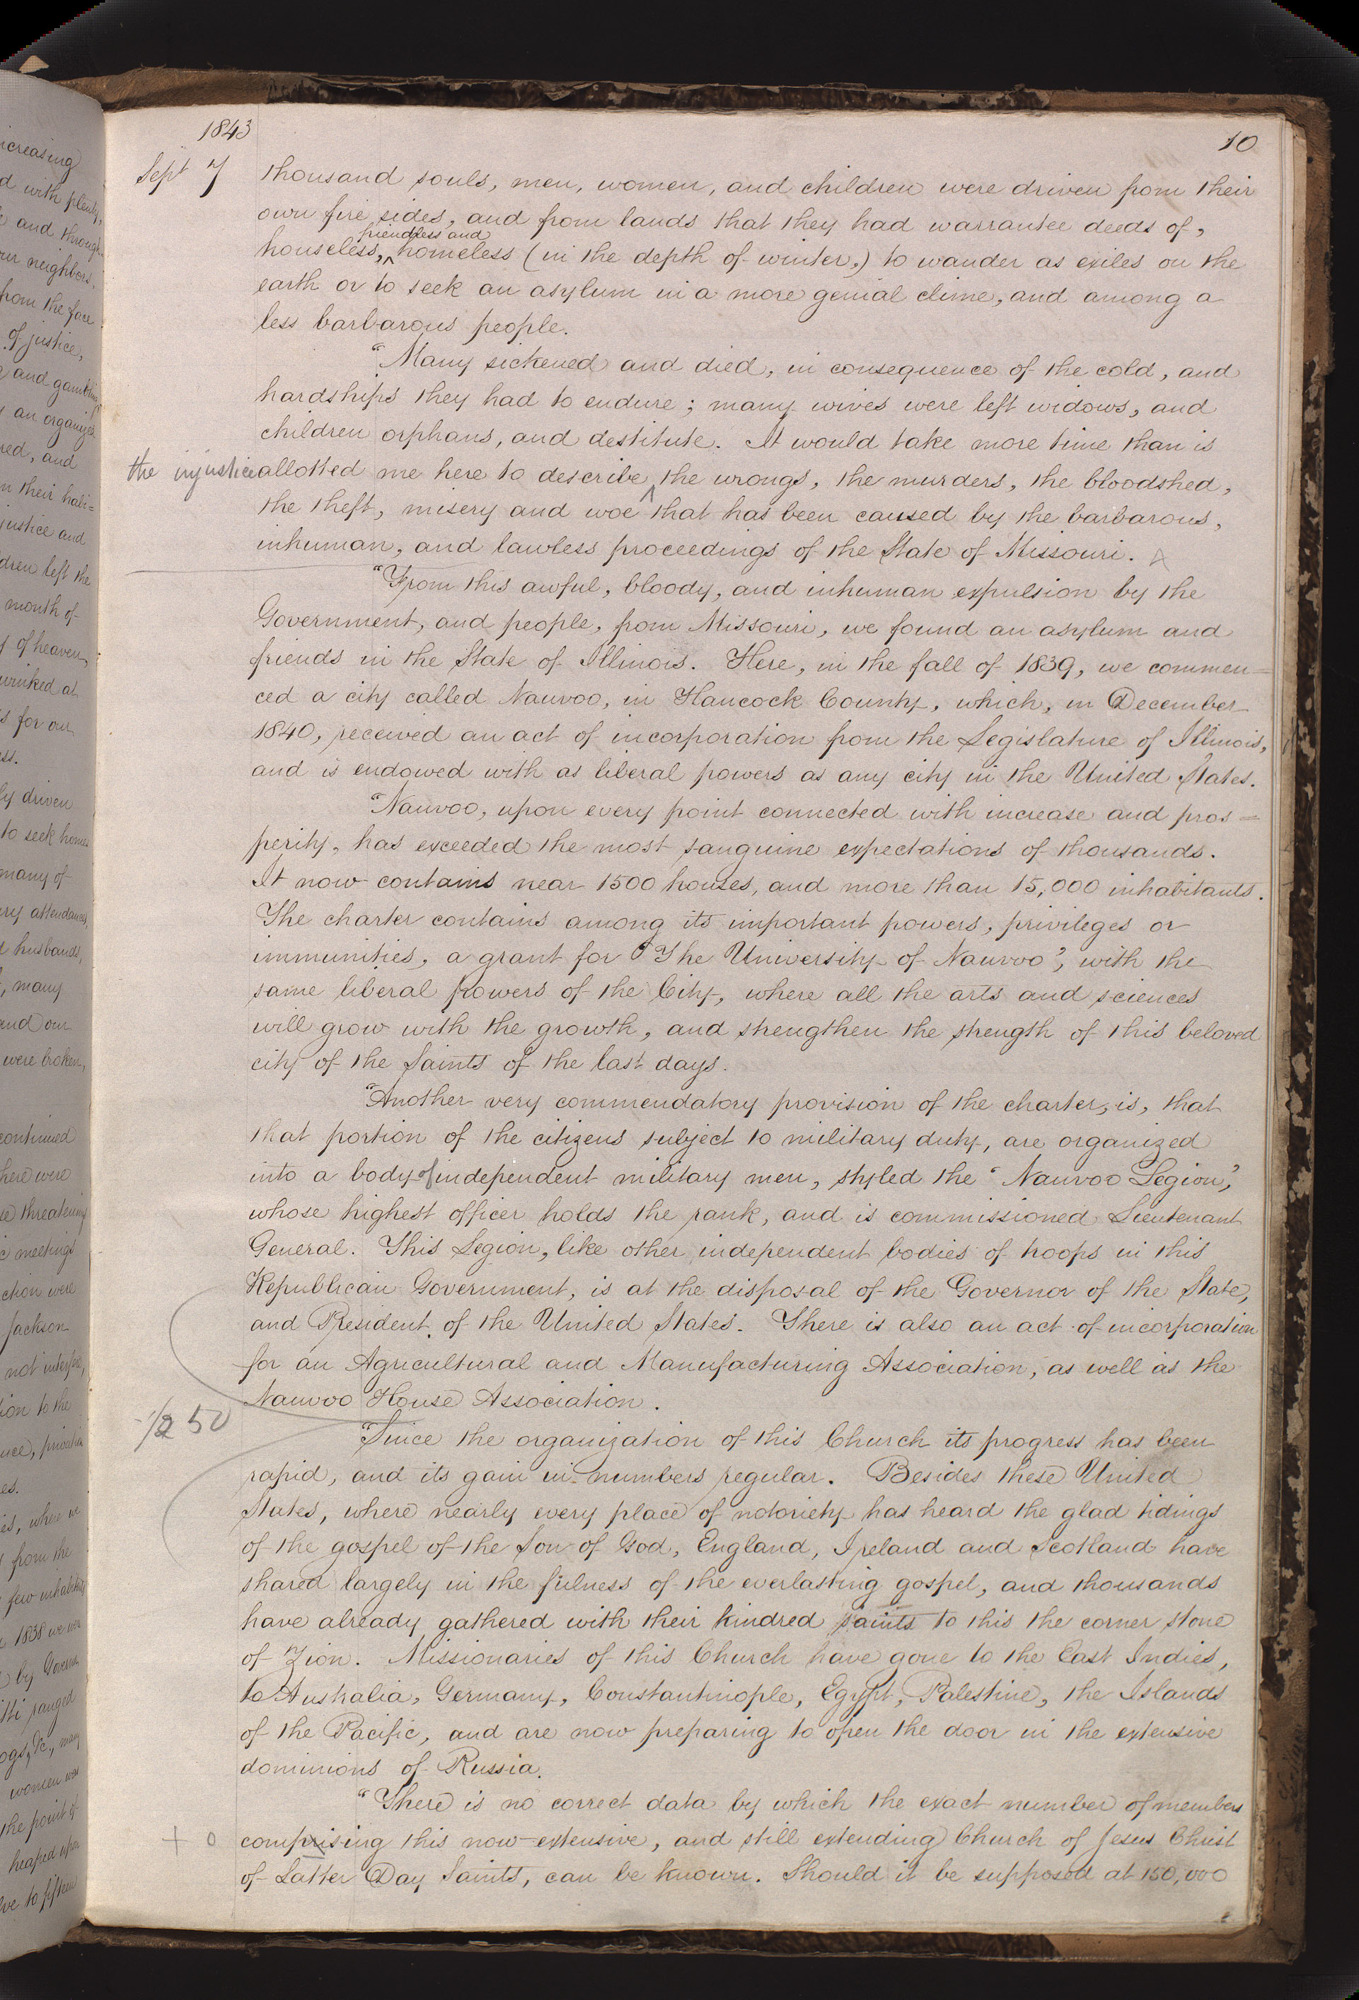 1843
10
Sept 7
thousand souls, men, women, and children were driven from their
own fire sides, and from lands that they had warrantee deeds of,
friendless and
houseless, ^ homeless (in the depth of winter,) to wander as exiles on the
earth or to seek an asylum in a more genial clime, and among a
less barbarous people.
"Many sickened and died, in consequence of the cold, and
hardships they had to endure; many wives were left widows, and
children orphans, and destitute. It would take more time than is
the injustice
allotted me here to describe ^ the wrongs, the murders, the bloodshed,
the theft, misery and woe that has been caused by the barbarous,
inhuman, and lawless proceedings of the State of Missouri.
"From this awful, bloody, and inhuman expulsion by the
Government, and people, from Missouri, we found an asylum and
friends in the State of Illinois. Here, in the fall of 1839, we commen=
ced a city called Nauvoo, in Hancock County, which, in December
1840, received an act of incorporation from the Legislature of Illinois,
and is endowed with as liberal powers as any city in the United States.
"Nauvoo, upon every point connected with increase and pros=
perity, has exceeded the most sanguine expectations of thousands.
It now contains near 1500 houses, and more than 15,000 inhabitants.
The charter contains among its important powers, privileges or
immunities, a grant for "The University of Nauvoo", with the
same liberal powers of the City, where all the arts and sciences
will grow with the growth, and strengthen the strength of this beloved
city of the Saints of the last days.
"Another very commendatory provision of the charter, is, that
that portion of the citizens subject to military duty, are organized
into a body of independent military men, styled the "Nauvoo Legion",
whose highest officer holds the rank, and is commissioned Lieutenant
General. This Legion, like other independent bodies of troops in this
Republican Government, is at the disposal of the Governor of the State,
and President of the United States. There is also an act of incorporation
for an Agricultural and Manufacturing Association, as well as the
Nauvoo House Association.
"Since the organization of this Church its progress has been
rapid, and its gain in numbers regular. Besides these United
States, where nearly every place of notoriety has heard the glad tidings
of the gospel of the Son of God, England, Ireland and Scotland have
shared largely in the fulness of the everlasting gospel, and thousands
have already gathered with their kindred saints to this the corner stone
of Zion. Missionaries of this Church have gone to the East Indies,
to Australia, Germany, Constantinople, Egypt, Palestine, the Islands
of the Pacific, and are now preparing to open the door in the extensive
dominions of Russia.
"There is no correct data by which the exact number of members
+ 0
comprising this now extensive, and still extending Church of Jesus Christ
of Latter Day Saints, can be known. Should it be supposed at 150,000